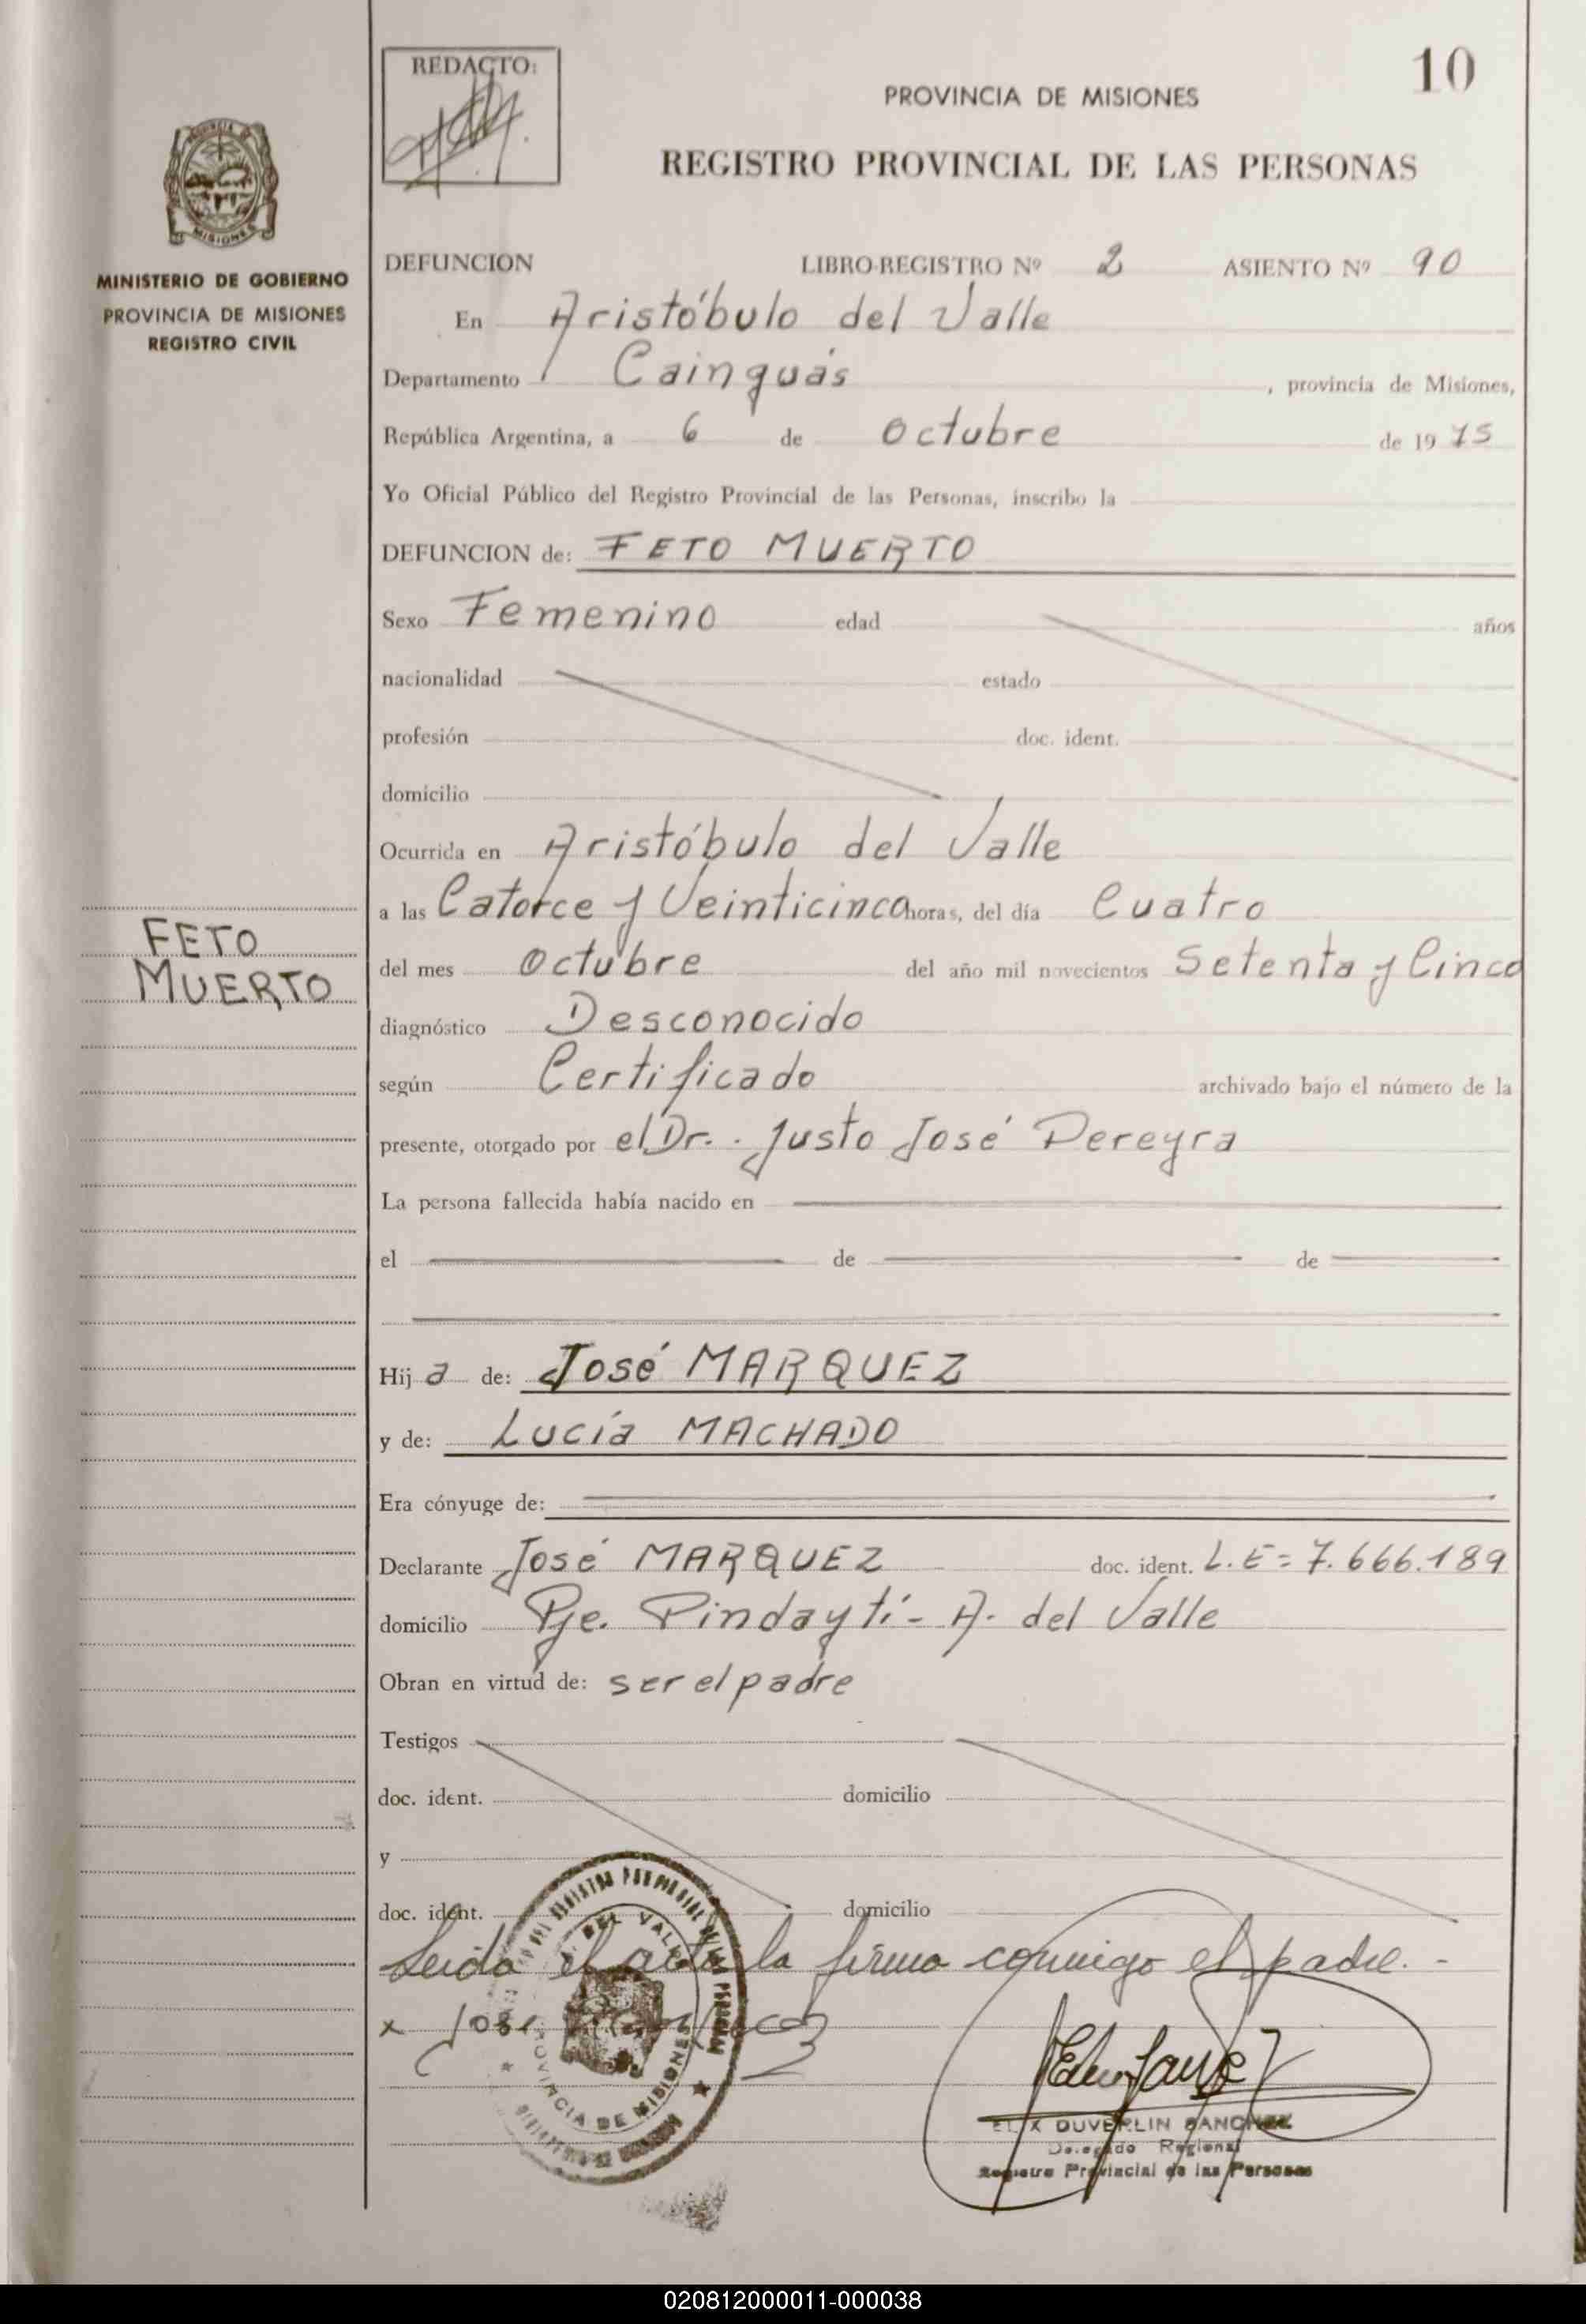 10
REDACTO:
PROVINCIA DE MISIONES
REGISTRO PROVINCIAL DE LAS PERSONAS
MISIONES
MINISTERIO DE GOBIERNO
PROVINCIA DE MISIONES
REGISTRO CIVIL
DEFUNCION LIBRO-REGISTRO Nº 2 ASIENTO Nº 90
En Aristóbulo del Valle
Departamento Cainguás, provincia de Misiones,
República Argentina, a 6 de Octubre de 1975
Yo Oficial Público del Registro Provincial de las Personas, inscribo la
DEFUNCION de: FETO MUERTO
Sexo Femenino edad años
nacionalidad estado
profesión doc. ident.
domicilio
Ocurrida en Aristóbulo del Valle
a las Catorce y Veinticinco horas, del día Cuatro
FETO
MUERTO
del mes Octubre del año mil novecientos Setenta y Cinco
diagnóstico Desconocido
según Certificado archivado bajo el número de la
presente, otorgado por el Dr. Justo José Pereyra
La persona fallecida había nacido en
el de de
Hija de: José MARQUEZ
y de: Lucía MACHADO
Era cónyuge de:
Declarante José MARQUEZ doc. ident. L.E= 7.666.189
domicilio Pje. Pindaytí - A. del Valle
Obran en virtud de: ser el padre
Testigos
doc. ident. domicilio
y
doc. ident. domicilio
Leida el acta la firma conmigo el padre. -
x José
DEL VALLE
PROVINCIA DE MISIONES
DUVERLIN SANCHEZ
Delegado Regional
Registro Provincial de las Personas
020812000011-000038